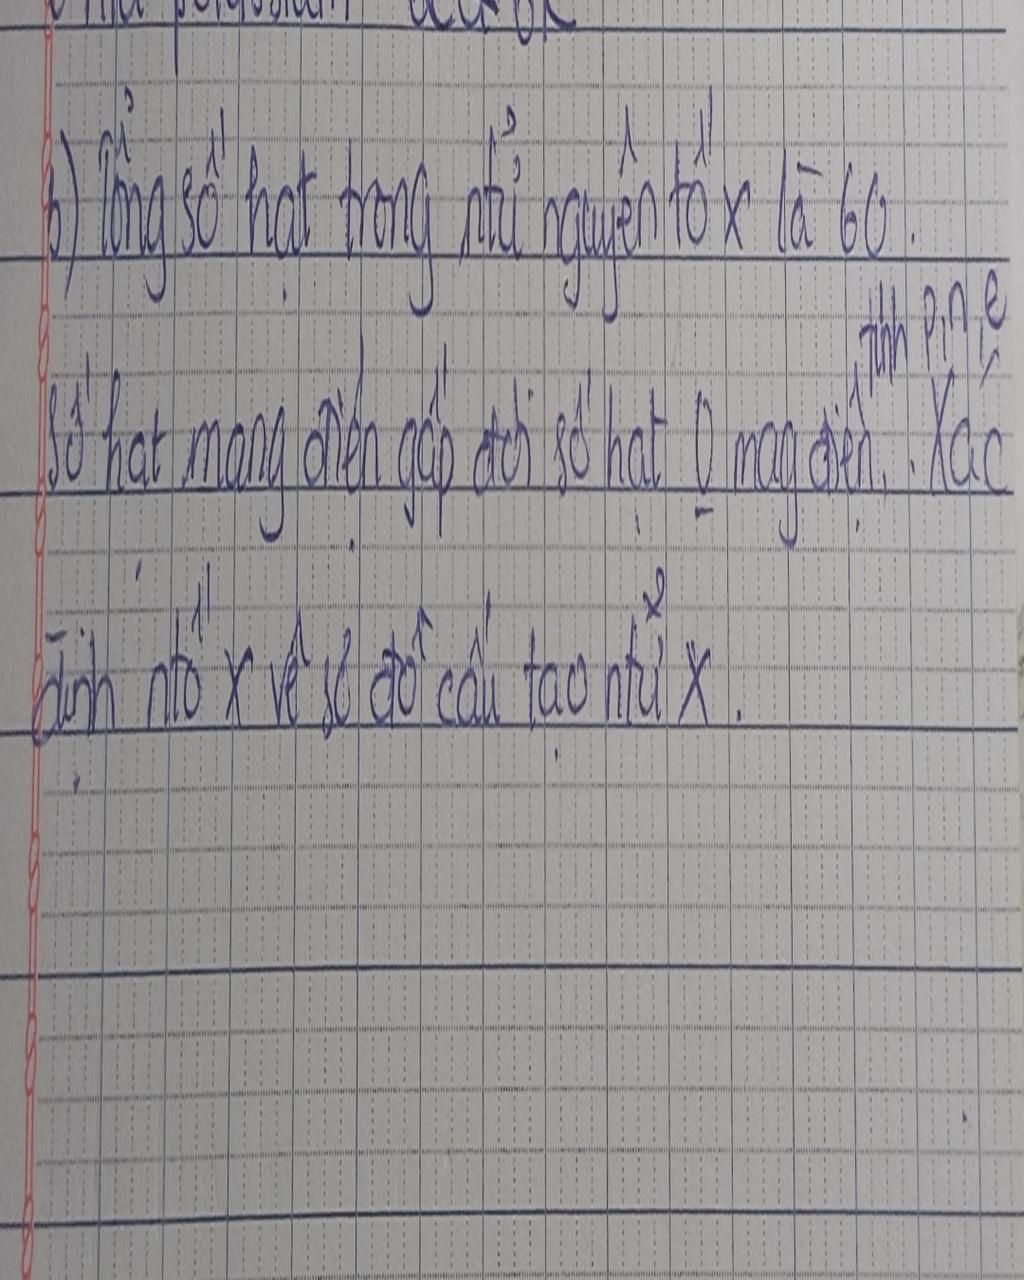 b) Tổng số hạt trong ntử nguyên tố x là 60.
tính p, n, e
số hạt mang điện gấp đôi số hạt 0 mag điện. Xác
định ntố x vẽ sơ đồ cấu tạo ntử x.